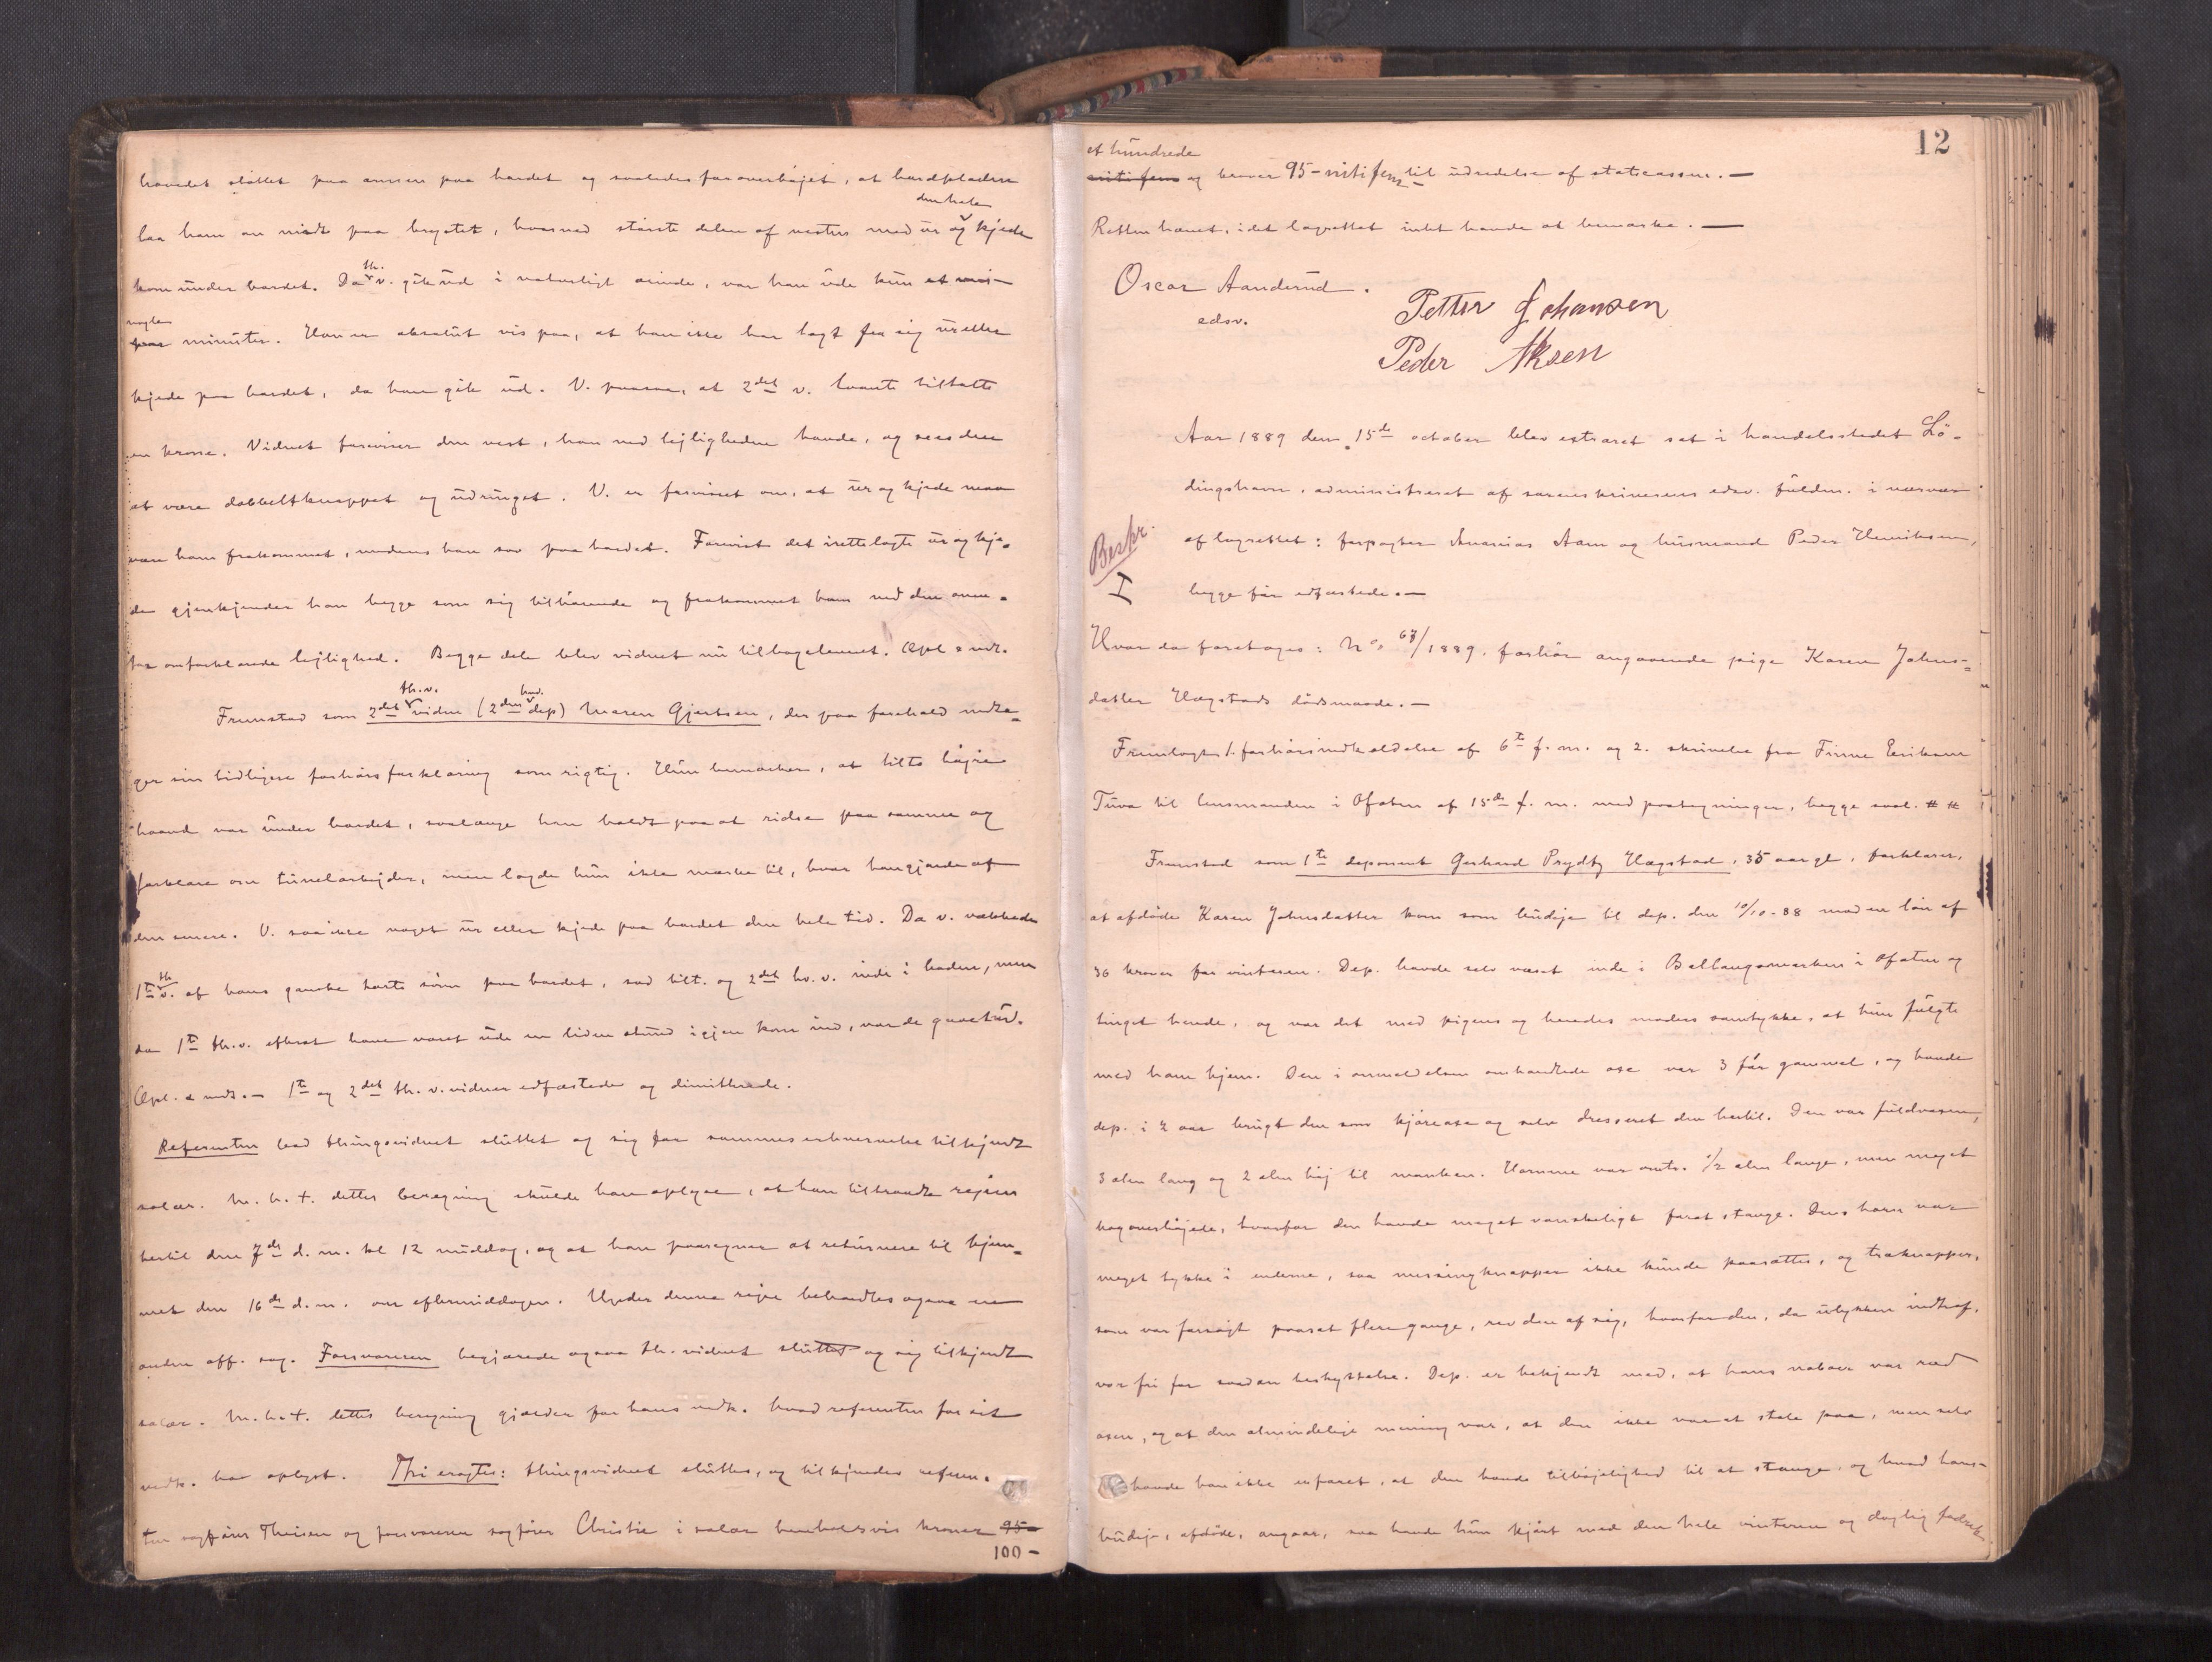 hovedet støttet paa armen paa bordet og saaledes foroverbøjet, at bordpladen
den hele
laa ham om midt paa brystet, hvorved største delen af vesten med ur og kjede
th.
kom under bordet. Da v. gik ud i naturligt ærinde, var han ude kun et
nogle
par minuter. Han er absolut vis paa, at han ikke har lagt fra sig ur eller
kjede paa bordet, da han gik ud. V. paasaa, at 2det v. laante tiltalte
en krone. Vidnet foreviser den vest, han ved lejligheden havde, og sees den
at være dobbeltknappet og udringet. V. er forvisset om, at ur og kjede maa
være ham frakommet, medens han sov paa bordet. Forevist det irettelagte ur og kje-
de gjenkjender han begge som sig tilhørende og frakommet ham ved den oven-
for omforklarede lejlighed. Begge dele blev vidnet nu tilbageleveret. Opl. & vedt.
th. v. hov.
Fremstod som 2det vidne (2den dep) Maren Gjertsen, der paa forehold vedta-
ger sin tidligere forhørsforklaring som rigtig. Hun bemærker, at tilts højre
haand var under bordet, saalænge han holdt paa at ridse paa samme og
forklare om tunelarbejder, men lagde hun ikke mærke til, hvor han gjorde af
den senere. V. saa ikke noget ur eller kjede paa bordet den hele tid. Da v. vækkede
th.
1te v. af hans ganske korte søvn paa bordet, sad tilt. og 2det hv. v. inde i boden, men
da 1te th. v. efterat have været ude en liden stund igjen kom ind, var de gaaet ud.
Opl. & vedt. — 1te og 2det th. v. vidner edfæstede og dimitterede.
Referenten bad thingsvidnet sluttet og sig for sammes erhvervelse tilkjendt
salær. M. h. t. dettes beregning skulde han oplyse, at han tiltraadte rejsen
hertil den 7de d. m. kl 12 middag, og at han paaregner at returnere til hjem-
met den 16de d. m. om eftermiddagen. Under denne rejse behandles ogsaa en
anden off. sag. Forsvareren begjærede ogsaa th. vidnet sluttet og sig tilkjendt
salær. M. h. t. dettes beregning gjælder for hans vedk. hvad referenten for sit
vedk. har oplyst. Thi eragtes: thingsvidnet sluttes, og tilkjendes referen-
ten sagfører Theisen og forsvareren sagfører Christie i salær henholdsvis kroner 95-
100 -
12
et hundrede
nitifem og kroner 95 - nitifem til udredelse af statscassen. —
Retten hævet, idet lagrettet intet havde at bemærke. —
Oscar Aanderud.
edsv.
Petter Johansen
Peder Aksen
Aar 1889 den 15de october blev extraret sat i handelsstedet Lö-
dingshavn, administreret af sorenskriverens edsv. fuldm. i nærvær
Beskr.
af lagrettet: forpagter Ananias Aam og husmand Peder Henriksen,
I
begge før edfæstede. —
Hvor da foretoges: No 67/1889, forhør angaaende pige Karen Johns-
datter Hægstads dødsmaade. —
Fremlagtes 1. forhørsindkaldelse af 6te f. m. og 2. skrivelse fra Finne Eriksen
Tuva til lensmanden i Ofoten af 15de f. m. med paategninger, begge saal. # #
Fremstod som 1te deponent Gerhard Prydtz Hægstad, 35 aar gl., forklarer,
at afdøde Karen Johnsdatter kom som budeje til dep. den 10/10-88 mod en løn af
36 kroner for vinteren. Dep. havde selv været inde i Ballangsmarken i Ofoten og
tinget hende, og var det med pigens og hendes moders samtykke, at hun fulgte
med ham hjem. Den i anmeldelsen omhandlede oxe var 3 før gammel, og havde
dep. i 2 aar brugt den som kjøreoxe og selv dresseret den hertil. Den var fuldvoxen,
3 alen lang og 2 alen høj til manken. Hornene var omtr. 1/2 alen lange, men meget
bagoverbøjede, hvorfor den havde meget vanskeligt for at stange. Dens horn var
meget tykke i enderne, saa messingknapper ikke kunde paasættes, og træknapper,
som var forsøgt paasat flere gange, rev den af sig, hvorfor den, da ulykken indtraf,
var fri for saadan beskyttelse. Dep. er bekjendt med, at hans naboer var ræd
oxen, og at den almindelige mening var, at den ikke var at stole paa, men selv
havde han ikke erfaret, at den havde tilbøjelighed til at stange, og hvad hans
budeje, afdøde, angaar, saa havde hun kjørt med den hele vinteren og daglig